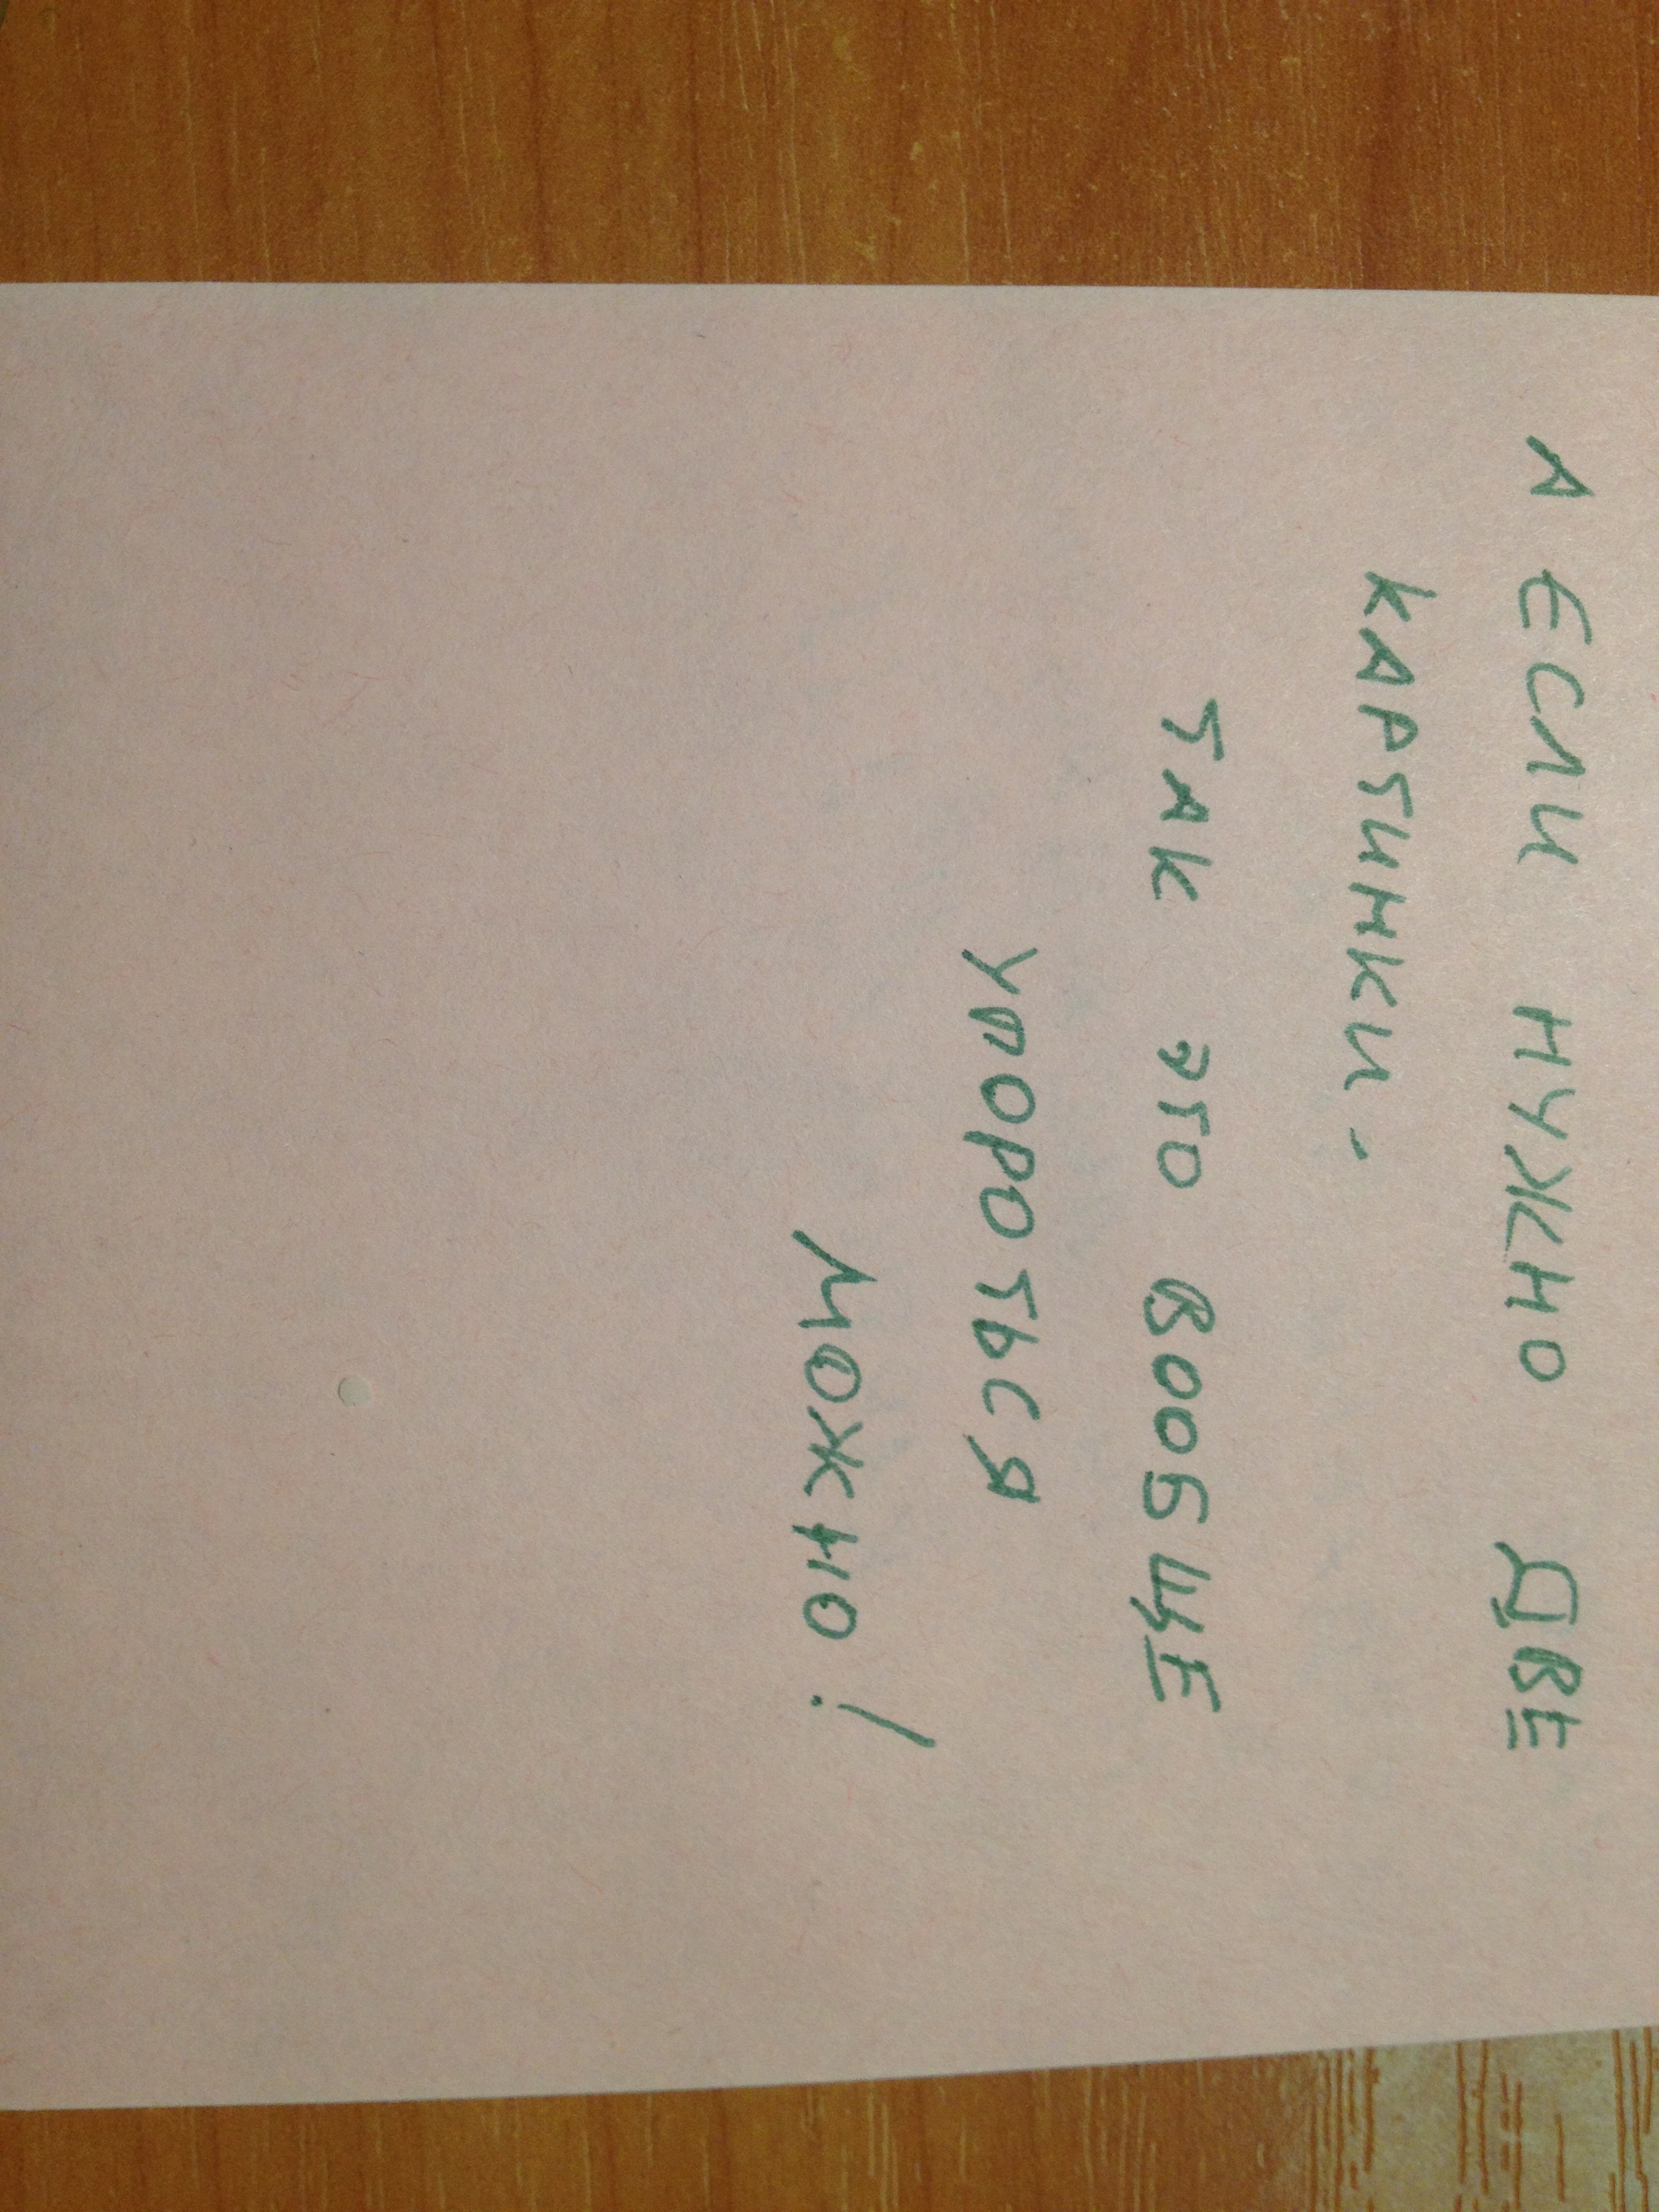 А ЕСЛИ НУЖНО ДВЕ
КАРТИНКИ.
ТАК ЭТО ВООБЩЕ
УПОРОТЬСЯ
МОЖНО!